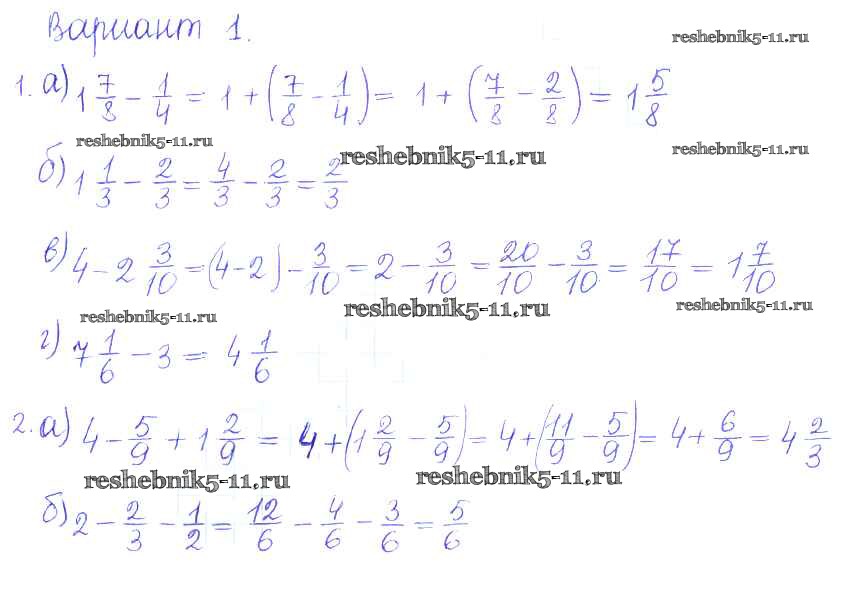 Вариант 1.
reshebnik5-11.ru
1. а) 1 7/8 - 1/4 = 1 + (7/8 - 1/4) = 1 + (7/8 - 2/8) = 1 5/8
reshebnik5-11.ru
reshebnik5-11.ru
reshebnik5-11.ru
б) 1 1/3 - 2/3 = 4/3 - 2/3 = 2/3
в) 4 - 2 3/10 = (4-2) - 3/10 = 2 - 3/10 = 20/10 - 3/10 = 17/10 = 1 7/10
reshebnik5-11.ru
reshebnik5-11.ru
reshebnik5-11.ru
г) 7 1/6 - 3 = 4 1/6
2. а) 4 - 5/9 + 1 2/9 = 4 + (1 2/9 - 5/9) = 4 + (11/9 - 5/9) = 4 + 6/9 = 4 2/3
reshebnik5-11.ru
reshebnik5-11.ru
б) 2 - 2/3 - 1/2 = 12/6 - 4/6 - 3/6 = 5/6